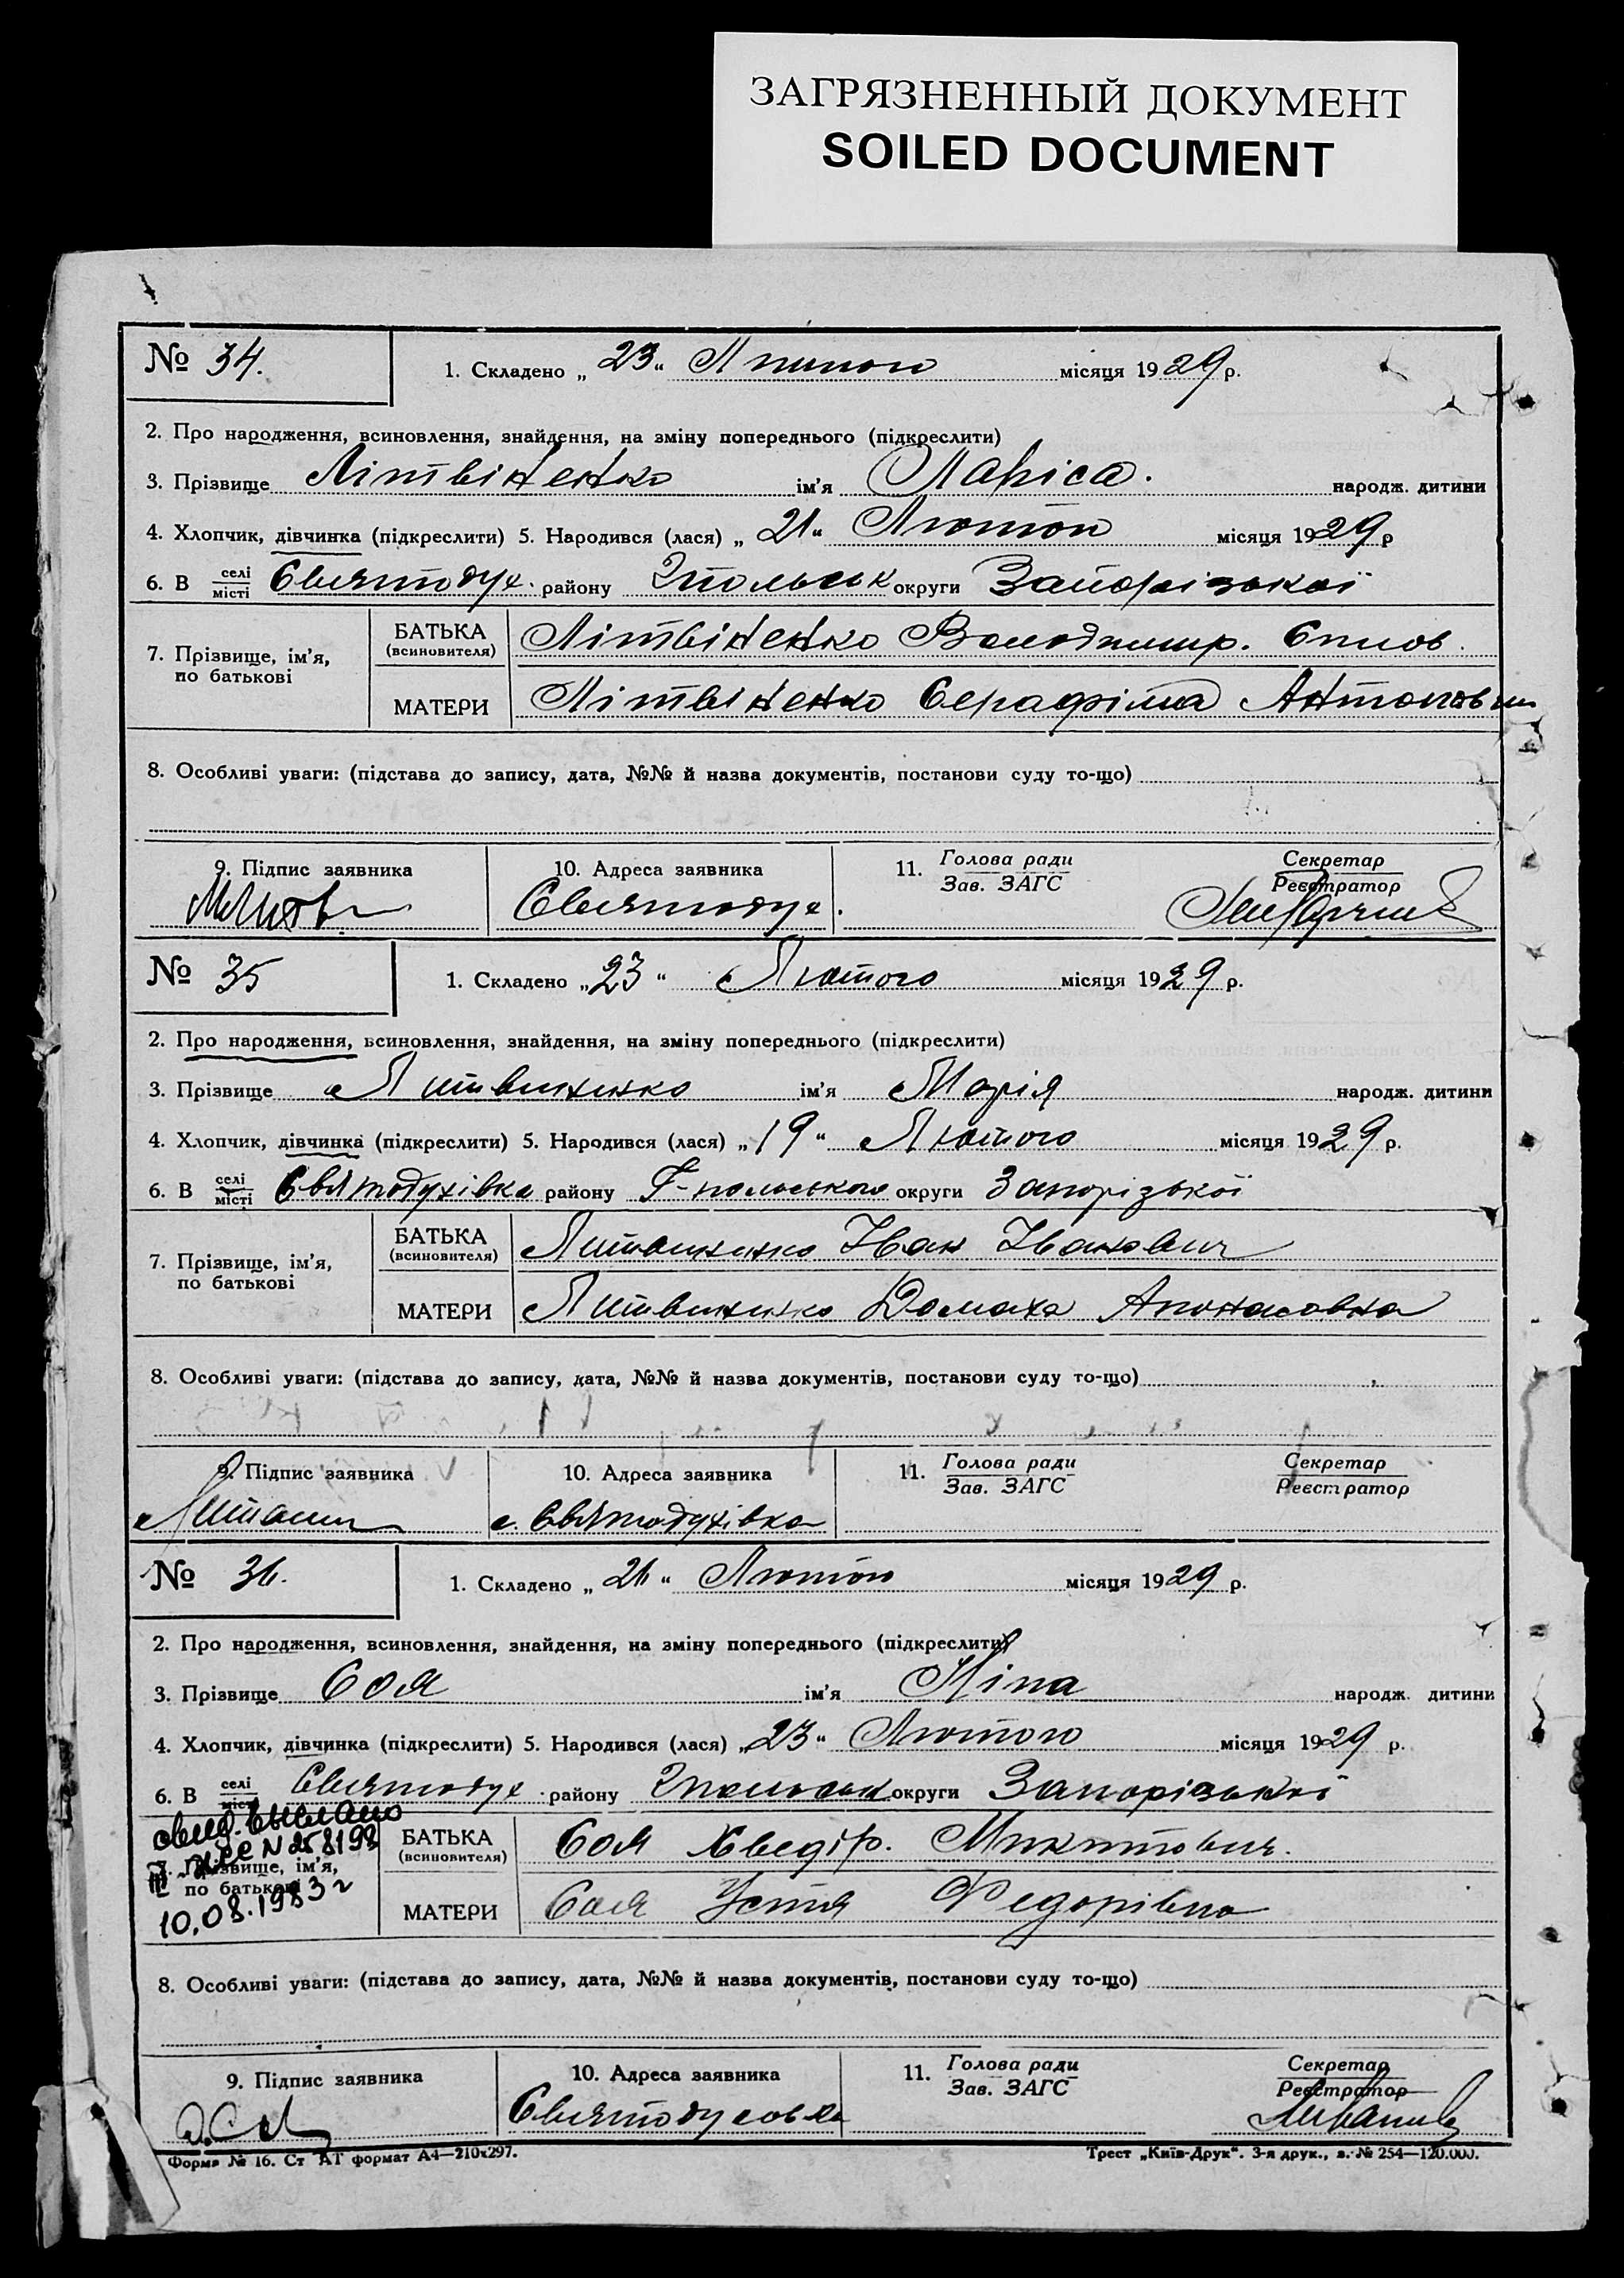 ЗАГРЯЗНЕННЫЙ ДОКУМЕНТ
SOILED DOCUMENT
№ 34. 1. Складено „ 23 “ Лютого місяця 1929 р.
2. Про народження, всиновлення, знайдення, на зміну попереднього (підкреслити)
3. Прізвище Літвіненко ім'я Лариса. народж. дитини
4. Хлопчик, дівчинка (підкреслити) 5. Народився (лася) „ 21 “ Лютого місяця 1929 р
6. В селі
місті Святодух. району Гпольськ округи Запорізької
7. Прізвище, ім'я,
по батькові
БАТЬКА
(всиновителя) Літвіненко Володимир.
МАТЕРИ Літвіненко Серафіма Антоновн
8. Особливі уваги: (підстава до запису, дата, №№ й назва документів, постанови суду то-що)
9. Підпис заявника 10. Адреса заявника 11. Голова ради
Зав. ЗАГС Секретар
Реєстратор
Святодух.
№ 35 1. Складено „ 23 “ Лютого місяця 1929 р.
2. Про народження, всиновлення, знайдення, на зміну попереднього (підкреслити)
3. Прізвище Литвиненко ім'я Марія народж. дитини
4. Хлопчик, дівчинка (підкреслити) 5. Народився (лася) „ 19 “ Лютого місяця 1929 р.
6. В селі
місті Святодухівка району Г-польського округи Запорізької
7. Прізвище, ім'я,
по батькові
БАТЬКА
(всиновителя) Литвиненко Іван Іванович
МАТЕРИ Литвиненко Домаха Апонасовна
8. Особливі уваги: (підстава до запису, дата, №№ й назва документів, постанови суду то-що)
9. Підпис заявника 10. Адреса заявника 11. Голова ради
Зав. ЗАГС Секретар
Реєстратор
с. Святодухівка
№ 36. 1. Складено „ 26 “ Лютого місяця 1929 р.
2. Про народження, всиновлення, знайдення, на зміну попереднього (підкреслити)
3. Прізвище Соя ім'я Ніна народж. дитини
4. Хлопчик, дівчинка (підкреслити) 5. Народився (лася) „ 23 “ Лютого місяця 1929 р.
6. В селі
місті Святодух. району Гпольськ округи Запорізької
7. Прізвище, ім'я,
по батькові
10.08.1983 г
БАТЬКА
(всиновителя) Соя Хведір. Микитович.
МАТЕРИ Соя Устя Федорівна
8. Особливі уваги: (підстава до запису, дата, №№ й назва документів, постанови суду то-що)
9. Підпис заявника 10. Адреса заявника 11. Голова ради
Зав. ЗАГС Секретар
Реєстратор
Святодусовка
Форма № 16. Ст АТ формат А4—210х297. Трест „Київ-Друк“. 3-я друк., з. № 254—120.000.